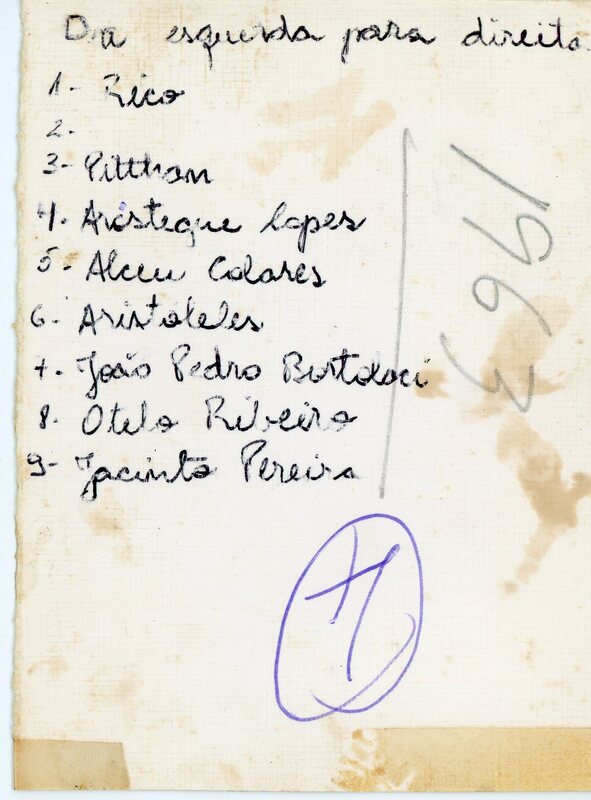 Da esquerda para direita
1- Rico
2-
3- Pitthan
4- Aristeque Lopes
5- Alceu Colares
6- Aristoteles
7- João Pedro Bertolaci
8- Otelo Ribeiro
9- Jacinto Pereira
1963